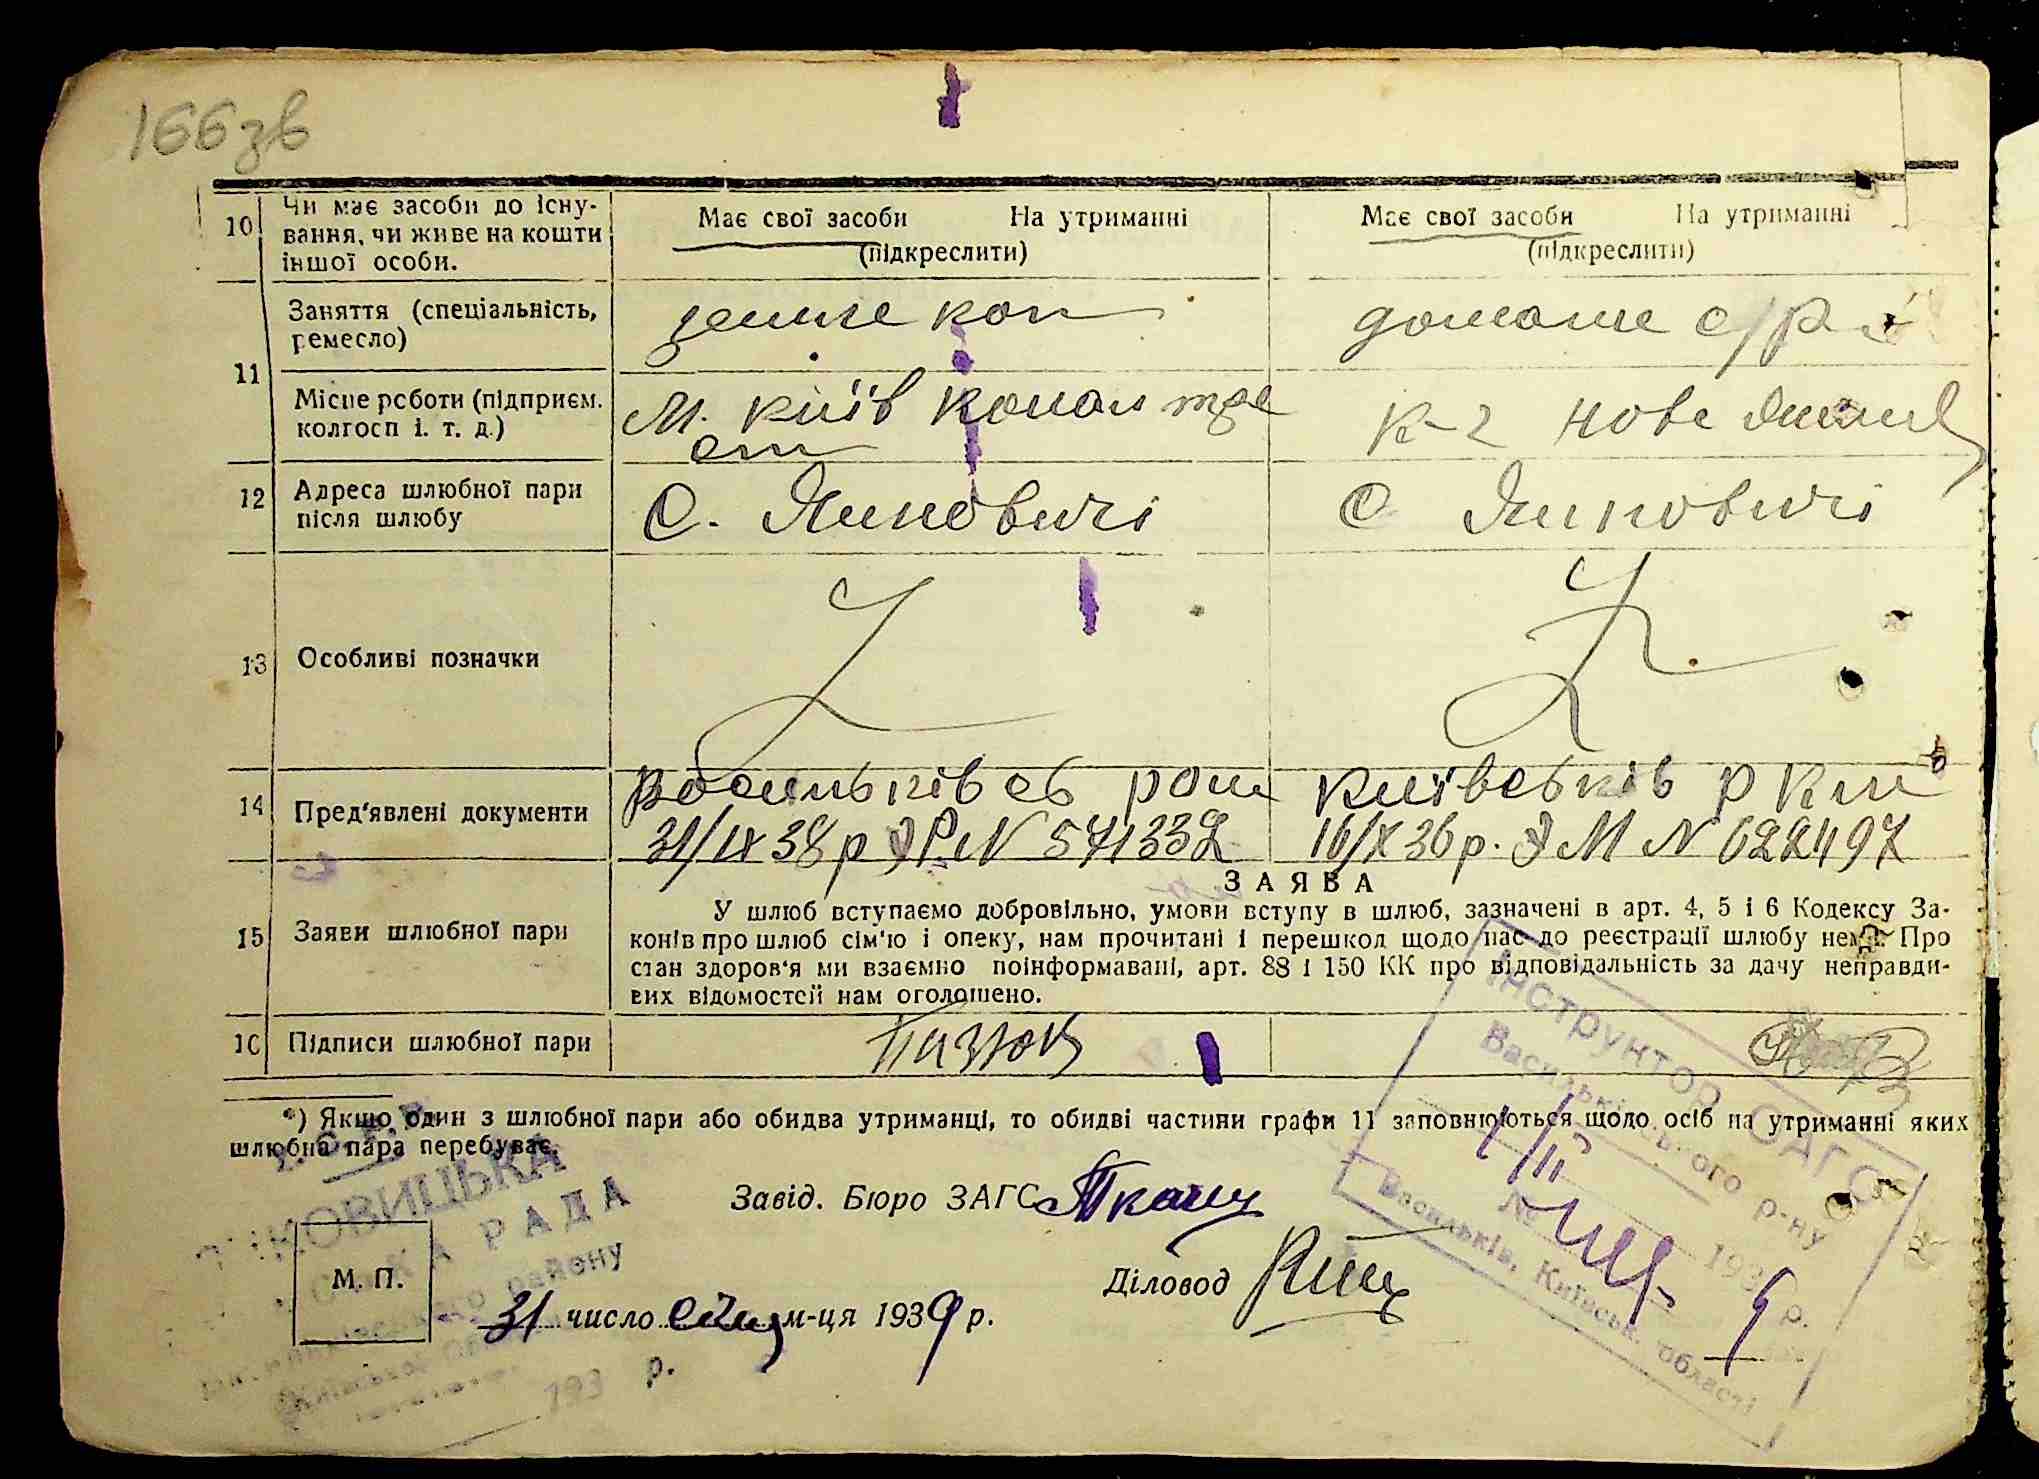 166зв
10 Чи має засоби до існу-
вання, чи живе на кошти
іншої особи.
Має свої засоби На утриманні
(підкреслити)
Має свої засоби На утриманні
(підкреслити)
11
Заняття (спеціальність,
ремесло)
земле коп
домаше с/р
Місце роботи (підприєм.
колгосп і. т. д.)
м. Київ
к-г нове
12 Адреса шлюбної пари
після шлюбу
с. Яцковичі
с Яцковичі
13 Особливі позначки
14 Пред'явлені документи
31/IX 38 р № 571332
16/X 36 р. ЭМ № 622497
15 Заяви шлюбної пари
ЗАЯВА
У шлюб вступаємо добровільно, умови вступу в шлюб, зазначені в арт. 4, 5 і 6 Кодексу За-
конів про шлюб сім'ю і опеку, нам прочитані і перешкод щодо нас до реєстрації шлюбу нема. Про
стан здоров'я ми взаємно поінформавані, арт. 88 і 150 КК про відповідальність за дачу неправди-
вих відомостей нам оголошено.
16 Підписи шлюбної пари
*) Якщо один з шлюбної пари або обидва утриманці, то обидві частини графи 11 заповнюються щодо осіб на утриманні яких
шлюбна пара перебуває.
Завід. Бюро ЗАГС Ткач
М. П.
Діловод
31 число січня м-ця 1939 р.
РАДА
району
193 р.
Інструктор ОАГС
Васильківського р-ну
№ 193 р.
Васильків, Київськ. області